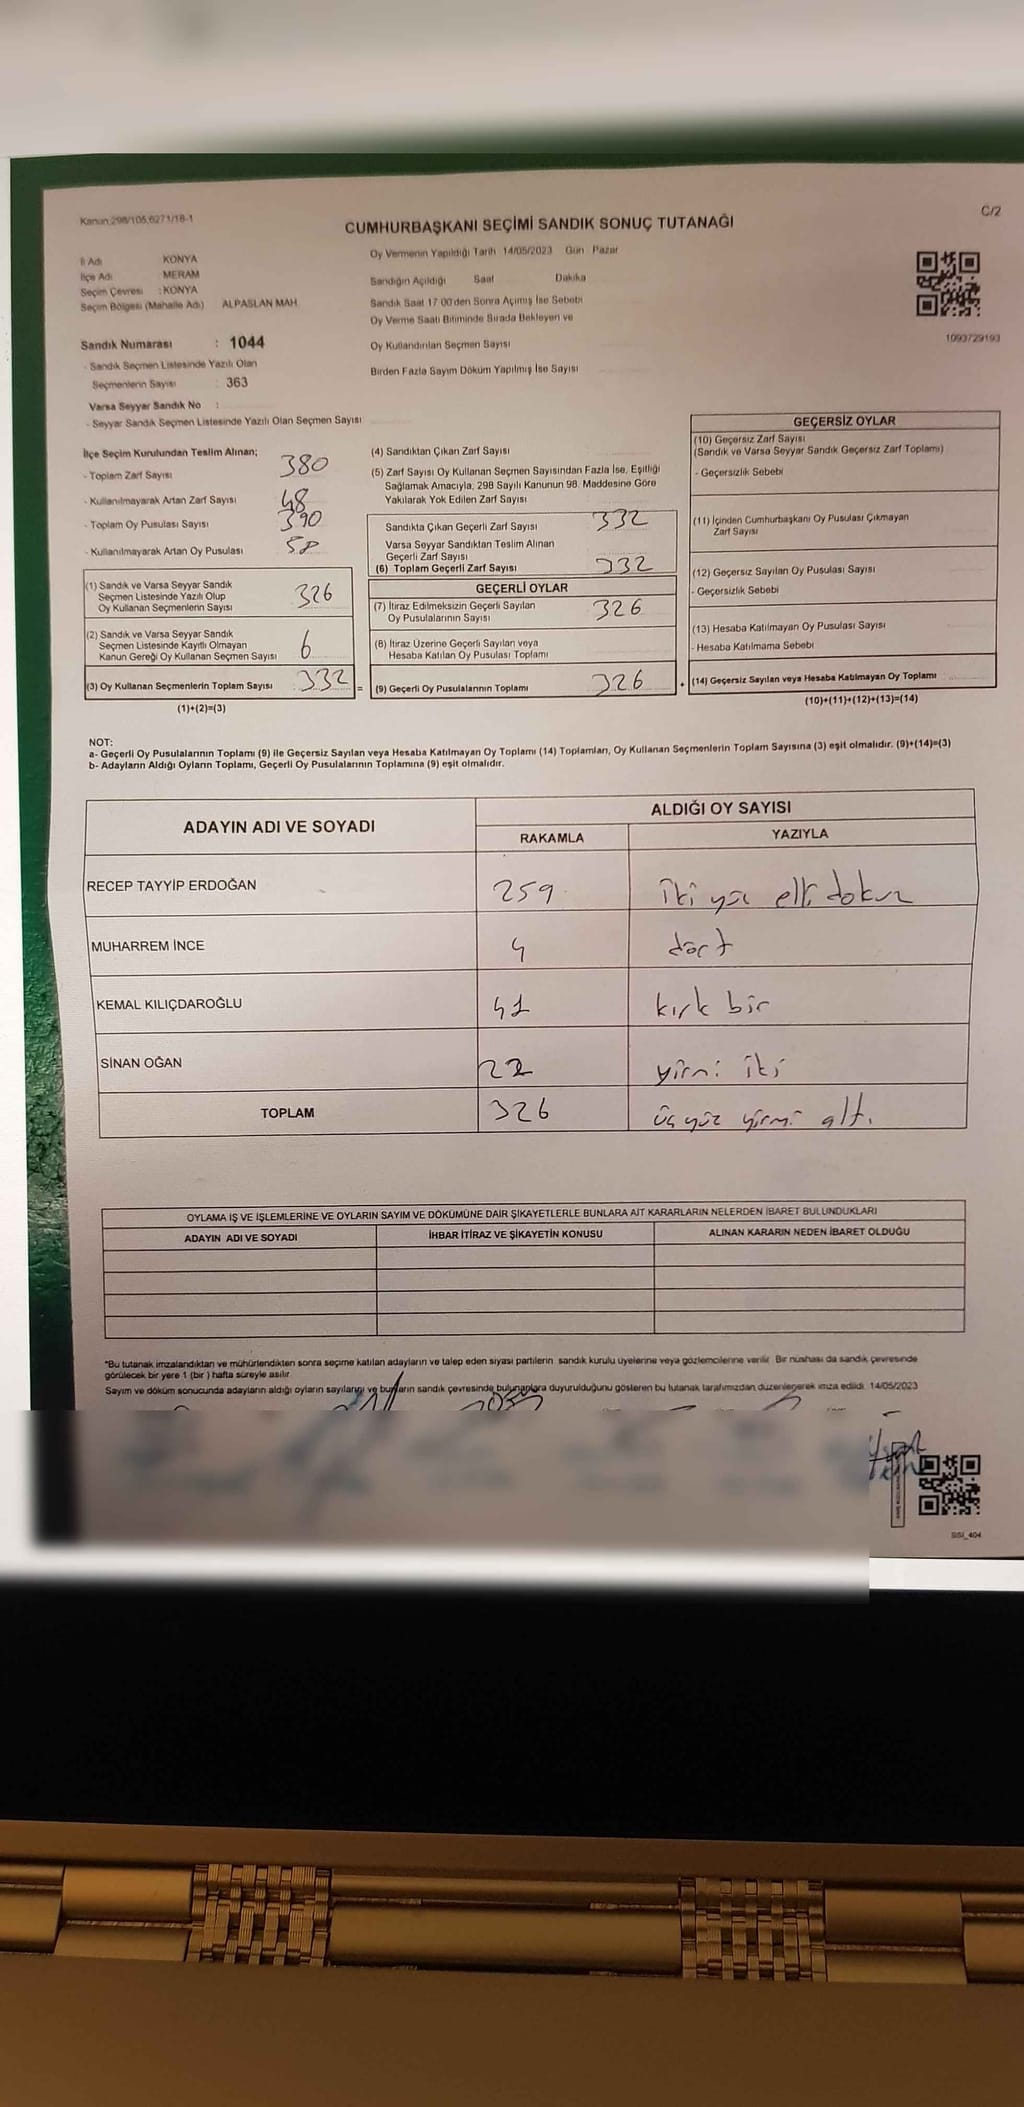 Kanun:298/105,6271/18-1
C/2
CUMHURBAŞKANI SEÇİMİ SANDIK SONUÇ TUTANAĞI
Oy Vermenin Yapıldığı Tarih 14/05/2023 Gün Pazar
İl Adı KONYA
İlçe Adı MERAM
Seçim Çevresi : KONYA
Seçim Bölgesi (Mahalle Adı) ALPASLAN MAH.
Sandığın Açıldığı Saat Dakika
Sandık Saat 17:00'den Sonra Açımış İse Sebebi
Oy Verme Saati Bitiminde Sırada Bekleyen ve
Oy Kullandırılan Seçmen Sayısı
Birden Fazla Sayım Döküm Yapılmış İse Sayısı
1093729193
Sandık Numarası : 1044
- Sandık Seçmen Listesinde Yazılı Olan
Seçmenlerin Sayısı : 363
Varsa Seyyar Sandık No :
- Seyyar Sandık Seçmen Listesinde Yazılı Olan Seçmen Sayısı
İlçe Seçim Kurulundan Teslim Alınan;
- Toplam Zarf Sayısı 380
- Kullanılmayarak Artan Zarf Sayısı 48
- Toplam Oy Pusulası Sayısı 390
- Kullanılmayarak Artan Oy Pusulası 58
(1) Sandık ve Varsa Seyyar Sandık
Seçmen Listesinde Yazılı Olup
Oy Kullanan Seçmenlerin Sayısı 326
(2) Sandık ve Varsa Seyyar Sandık
Seçmen Listesinde Kayıtlı Olmayan
Kanun Gereği Oy Kullanan Seçmen Sayısı 6
(3) Oy Kullanan Seçmenlerin Toplam Sayısı 332 =
(1)+(2)=(3)
(4) Sandıktan Çıkan Zarf Sayısı
(5) Zarf Sayısı Oy Kullanan Seçmen Sayısından Fazla İse, Eşitliği
Sağlamak Amacıyla; 298 Sayılı Kanunun 98. Maddesine Göre
Yakılarak Yok Edilen Zarf Sayısı
Sandıkta Çıkan Geçerli Zarf Sayısı 332
Varsa Seyyar Sandıktan Teslim Alınan
Geçerli Zarf Sayısı
(6) Toplam Geçerli Zarf Sayısı 332
GEÇERLİ OYLAR
(7) İtiraz Edilmeksizin Geçerli Sayılan
Oy Pusulalarının Sayısı 326
(8) İtiraz Üzerine Geçerli Sayılan veya
Hesaba Katılan Oy Pusulası Toplamı
(9) Geçerli Oy Pusulalarının Toplamı 326 +
GEÇERSİZ OYLAR
(10) Geçersiz Zarf Sayısı
(Sandık ve Varsa Seyyar Sandık Geçersiz Zarf Toplamı)
- Geçersizlik Sebebi
(11) İçinden Cumhurbaşkanı Oy Pusulası Çıkmayan
Zarf Sayısı
(12) Geçersiz Sayılan Oy Pusulası Sayısı
- Geçersizlik Sebebi
(13) Hesaba Katılmayan Oy Pusulası Sayısı
- Hesaba Katılmama Sebebi
(14) Geçersiz Sayılan veya Hesaba Katılmayan Oy Toplamı
(10)+(11)+(12)+(13)=(14)
NOT:
a- Geçerli Oy Pusulalarının Toplamı (9) ile Geçersiz Sayılan veya Hesaba Katılmayan Oy Toplamı (14) Toplamları, Oy Kullanan Seçmenlerin Toplam Sayısına (3) eşit olmalıdır. (9)+(14)=(3)
b- Adayların Aldığı Oyların Toplamı, Geçerli Oy Pusulalarının Toplamına (9) eşit olmalıdır.
ADAYIN ADI VE SOYADI ALDIĞI OY SAYISI
RAKAMLA YAZIYLA
RECEP TAYYİP ERDOĞAN 259 iki yüz elli dokuz
MUHARREM İNCE 4 dört
KEMAL KILIÇDAROĞLU 41 kırk bir
SİNAN OĞAN 22 yirmi iki
TOPLAM 326 üç yüz yirmi altı
OYLAMA İŞ VE İŞLEMLERİNE VE OYLARIN SAYIM VE DÖKÜMÜNE DAİR ŞİKAYETLERLE BUNLARA AİT KARARLARIN NELERDEN İBARET BULUNDUKLARI
ADAYIN ADI VE SOYADI İHBAR İTİRAZ VE ŞİKAYETİN KONUSU ALINAN KARARIN NEDEN İBARET OLDUĞU
*Bu tutanak imzalandıktan ve mühürlendikten sonra seçime katılan adayların ve talep eden siyasi partilerin sandık kurulu üyelerine veya gözlemcilerine verilir. Bir nüshası da sandık çevresinde
görülecek bir yere 1 (bir) hafta süreyle asılır.
Sayım ve döküm sonucunda adayların aldığı oyların sayılarını ve bunların sandık çevresinde bulunanlara duyurulduğunu gösteren bu tutanak tarafımızdan düzenlenerek imza edildi. 14/05/2023
SSI_404